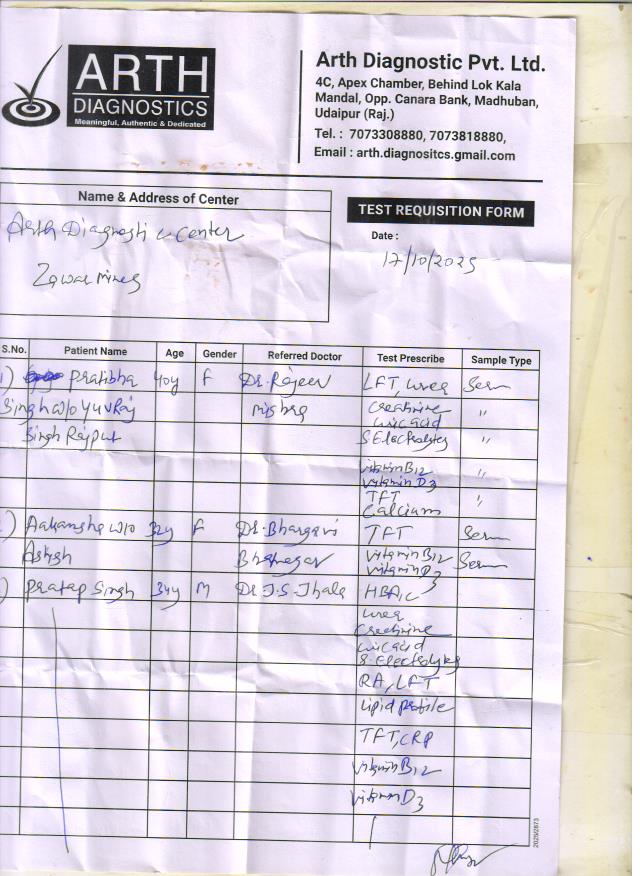 ARTH
DIAGNOSTICS
Meaningful, Authentic & Dedicated
Arth Diagnostic Pvt. Ltd.
4C, Apex Chamber, Behind Lok Kala
Mandal, Opp. Canara Bank, Madhuban,
Udaipur (Raj.)
Tel. : 7073308880, 7073818880,
Email : arth.diagnositcs.gmail.com
Name & Address of Center
Arth Diagnostic Center
Zawar mines
TEST REQUISITION FORM
Date :
17/10/2025
S.No. Patient Name Age Gender Referred Doctor Test Prescribe Sample Type
1) Pratibha 40y F Dr. Rajeev LFT, urea Serum
Singh w/o Yuvraj Mishra Creatinine "
uric acid
Singh Rajput S Electrolytes "
vitamin B12 "
vitamin D3
TFT "
Calcium
) Aakansha w/o 32y F Dr. Bhargavi TFT Serum
Ashish Bhatnagar vitamin B12 Serum
vitamin D3
) Pratap Singh 34y M Dr J.S. Jhala HBA1C
urea
Creatinine
uric acid
S. Electrolytes
RA, LFT
Lipid profile
TFT, CRP
vitamin B12
vitamin D3
2025/2873